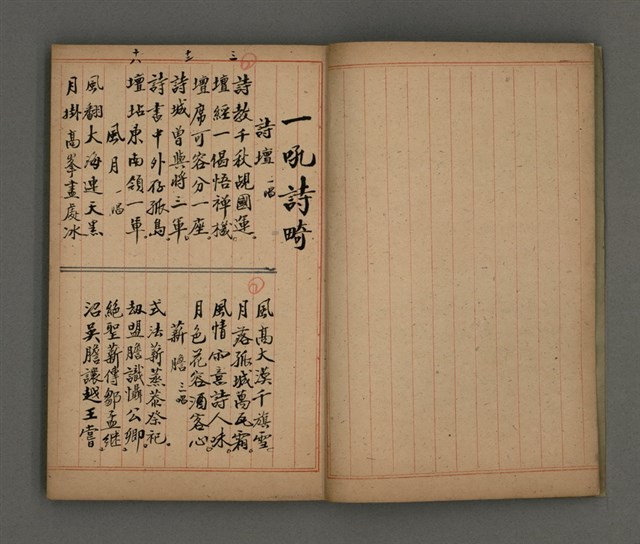 一吼詩畸
詩壇 一唱
詩教千秋覘國運。
壇經一偈悟禪機
壇席可容分一座。
詩城曾與將三軍。
詩書中外存孤島。
壇坫東南領一軍。
風月 一唱
風翻大海連天黑
月掛高峯畫處冰
風高大漠千旗雪
月落孤城萬瓦霜。
風情如意詩人味。
月色花容酒客心
薪膽 三唱
式法薪蒸恭祭祀。
劫盟膽識懾公卿。
絕聖薪傳鄒孟繼。
沼吳膽讓越王嘗